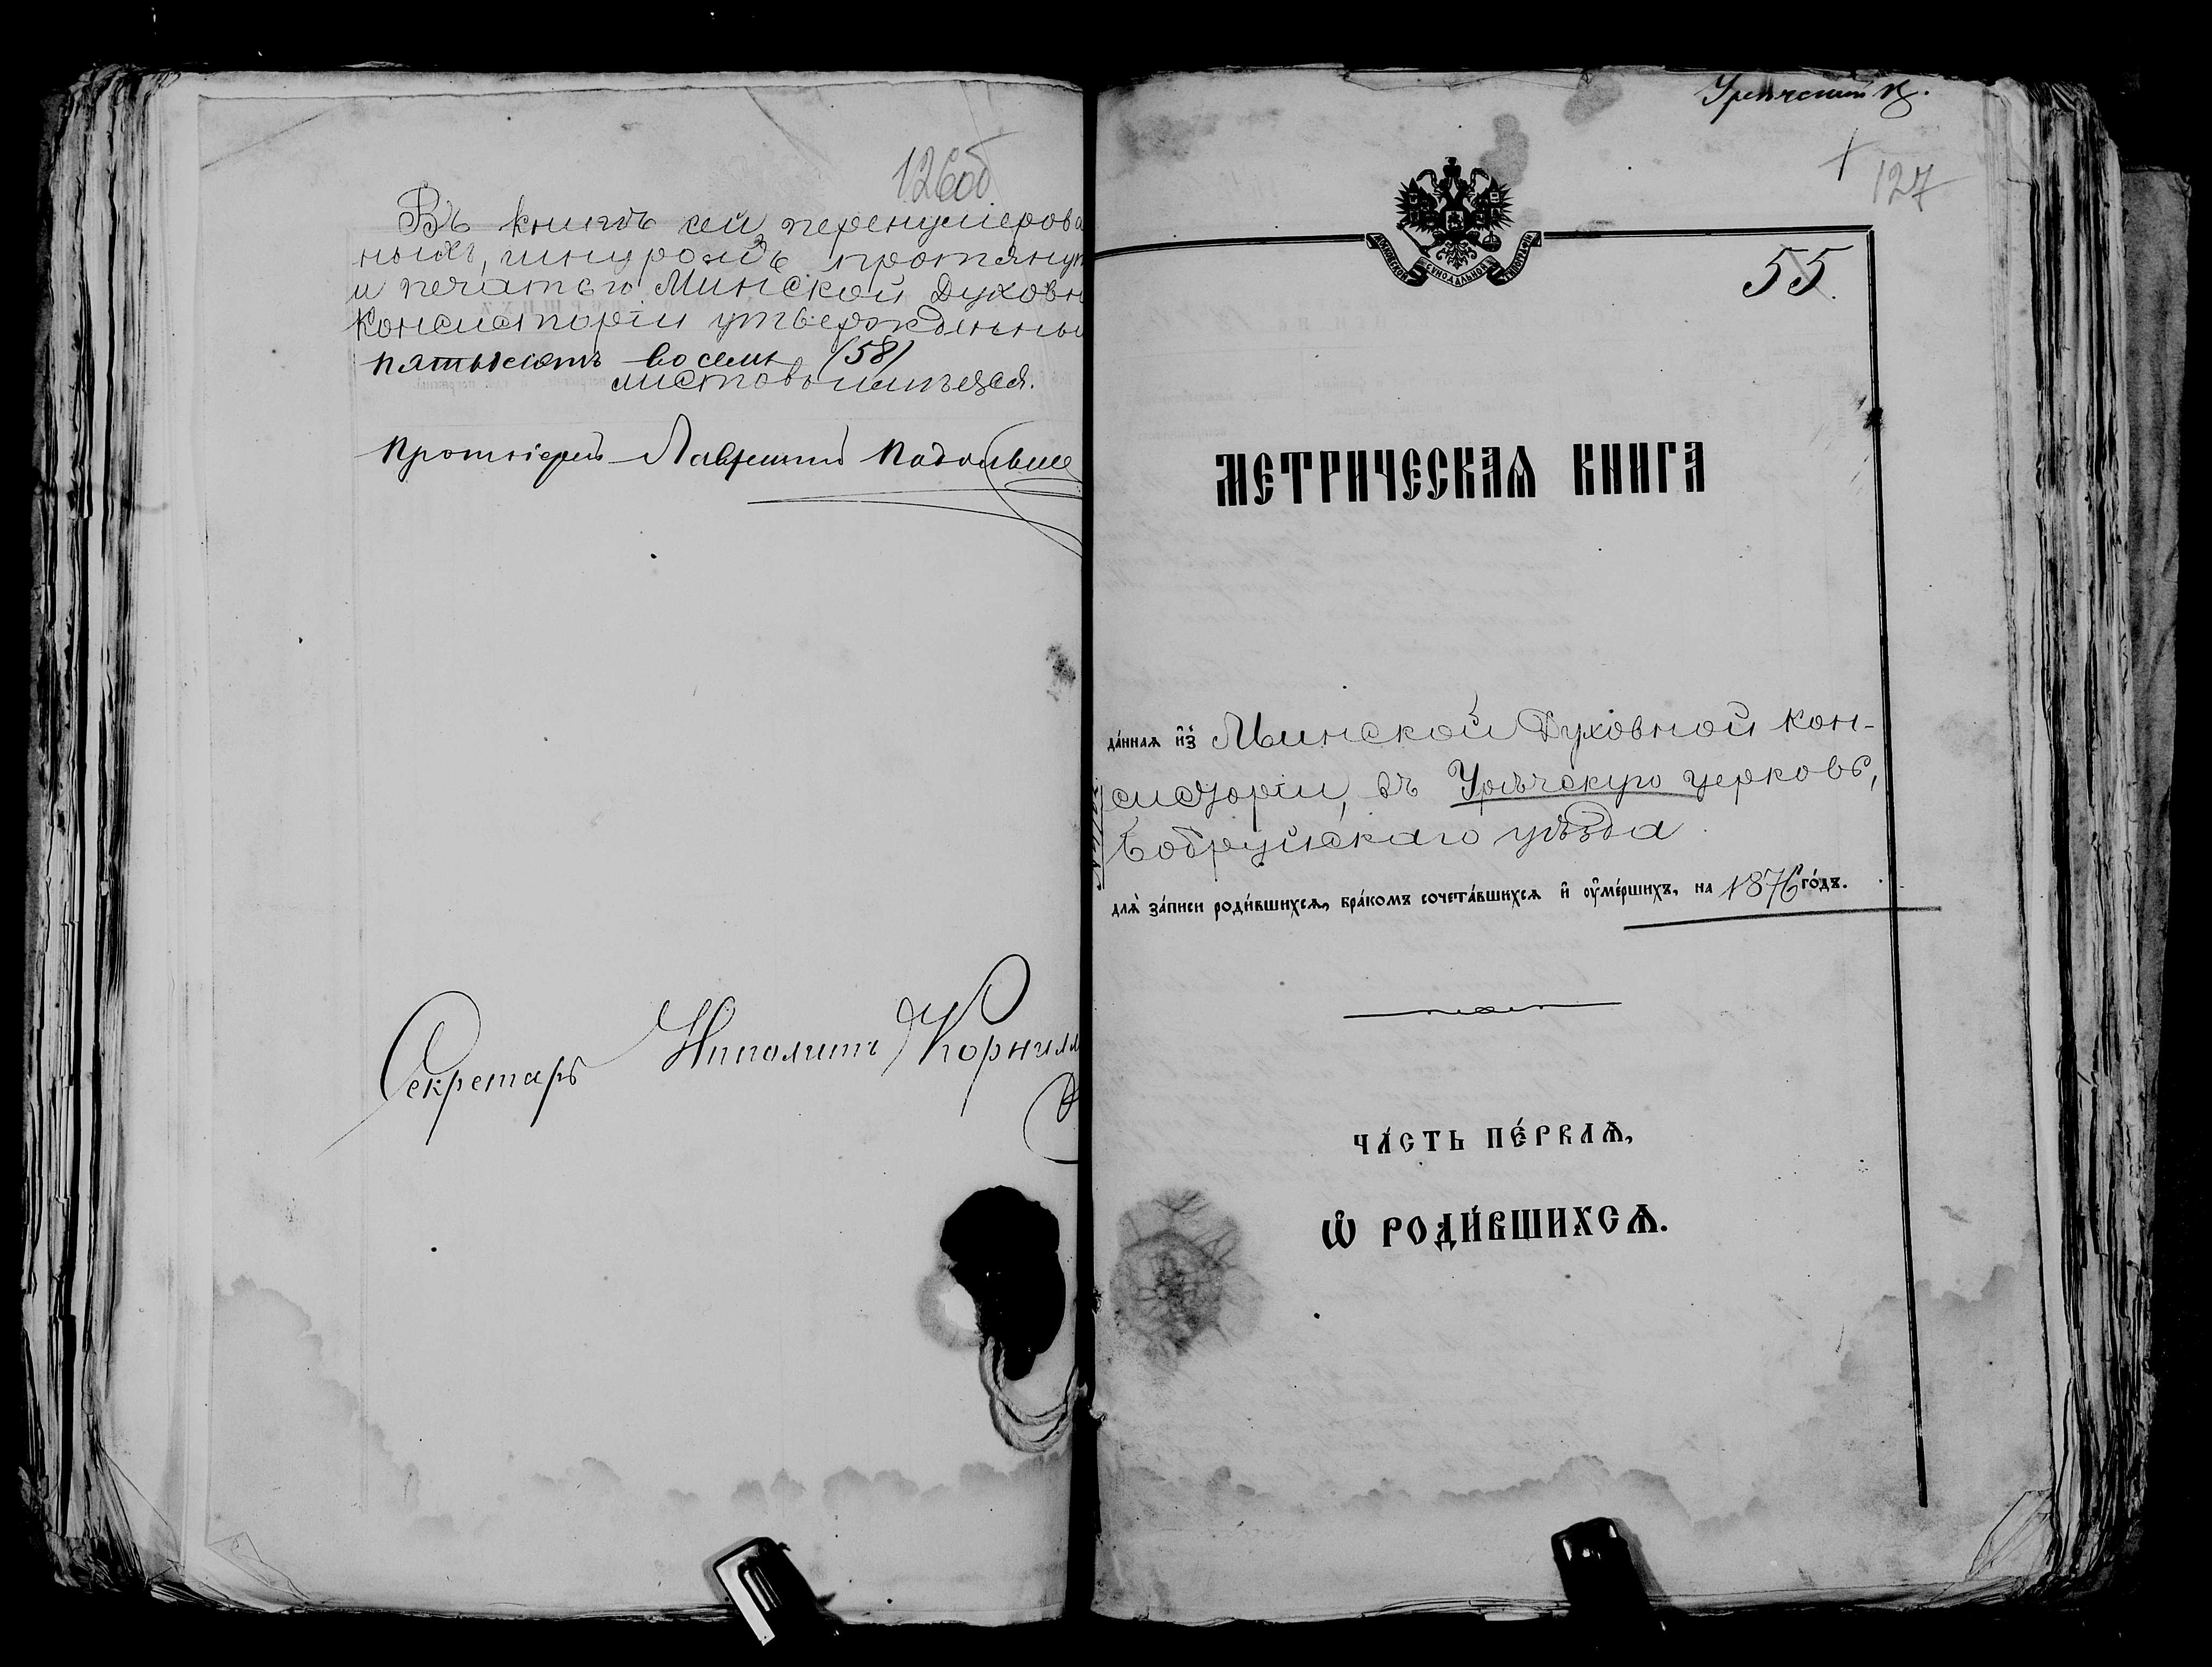 126об
Въ книгѣ сей перенумерова
ныхъ, шнуромъ протянут
и печатью Минской Духовн
Консисторіи утвержденны
пятьдесятъ восемь (58)
листовъ имѣется.
Протоіерей Лаврентій
Секретарь Ипполитъ Корнил
Урѣчской ц.
127
МОСКОВСКОЙ СѴНОДАЛЬНОЙ ТѴПОГРАФІИ
55.
МЕТРИЧЕСКАѦ КНИГА
да́ннаѧ и҆з̾ Минской Духовной Кон-
систоріи, въ Урѣчскую церковь,
Бобруйскаго уѣзда
для̀ за́писи роди́вшихсѧ, бра́комъ сочета́вшихсѧ и҆ ᲂу҆ме́ршихъ, на 1876 го́дъ.
ЧА́СТЬ ПЕ́РВАѦ,
Ѡ҆ РОДИ́ВШИХСѦ.